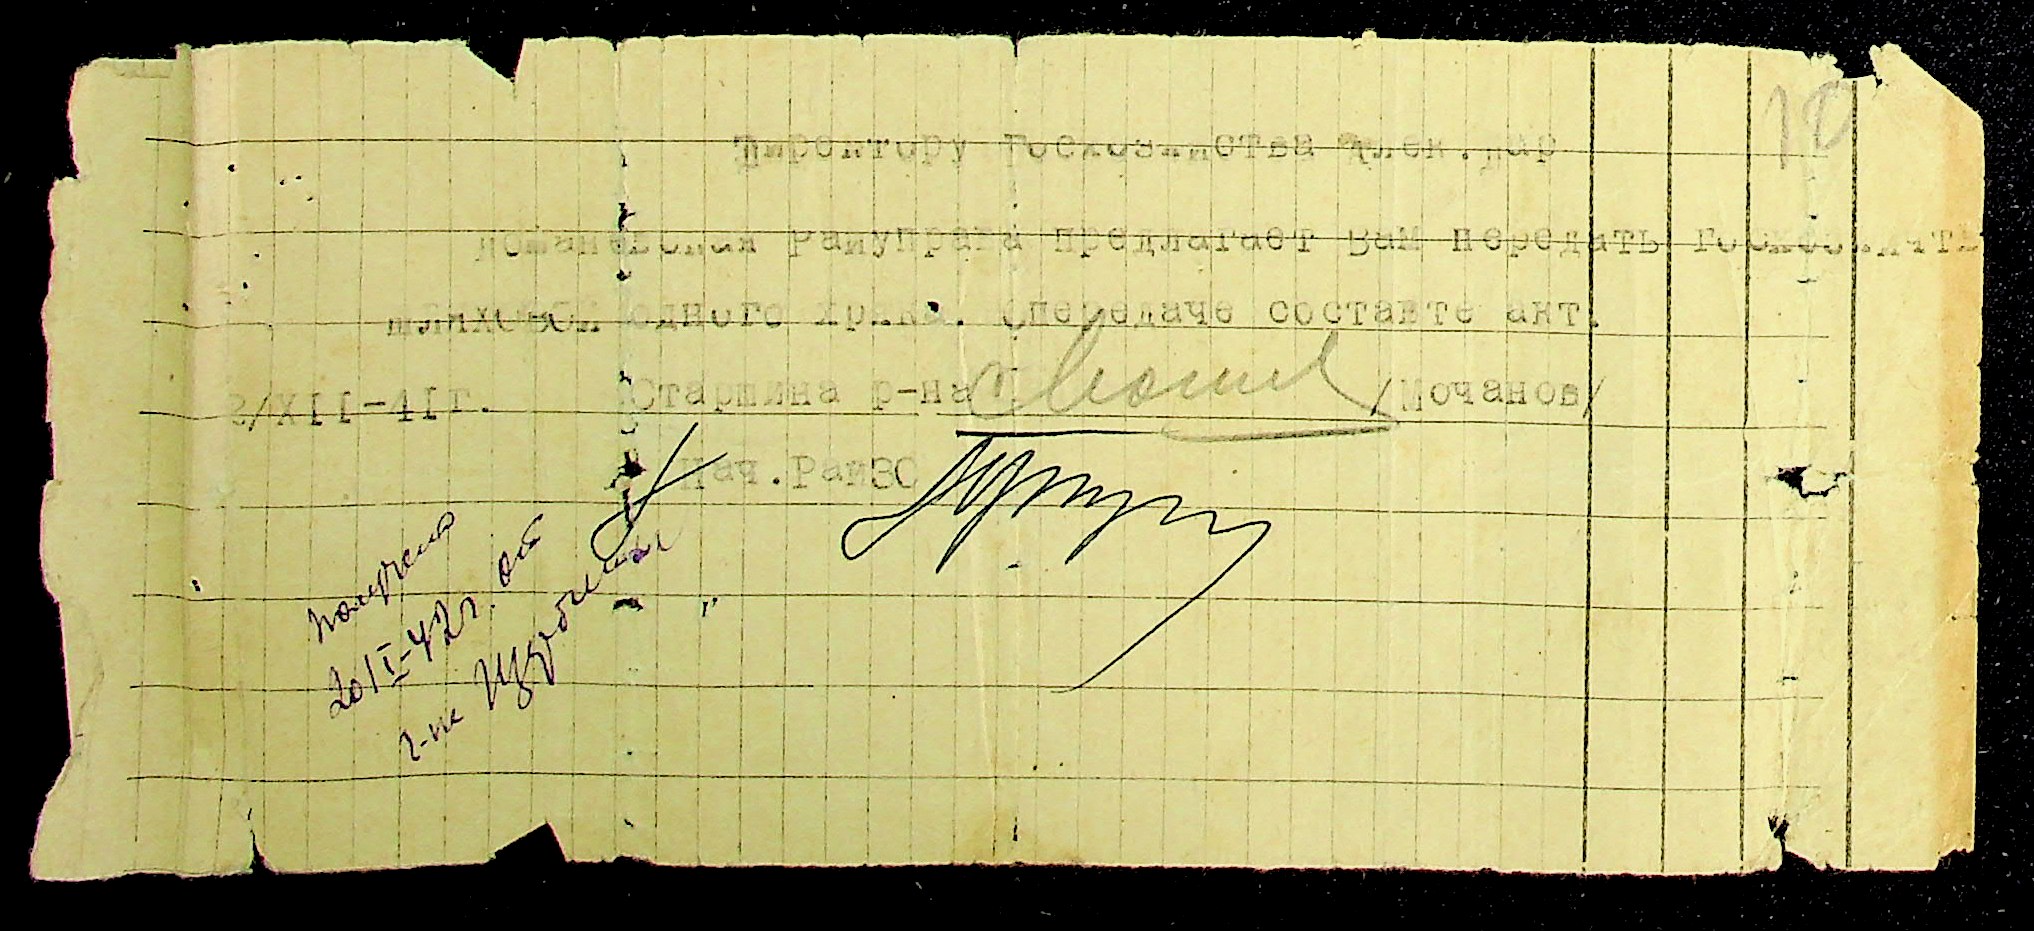 10
Директору Госхозяйства Алек.Дар
Романовская Райуправа предлагает Вам передать
одного хряка. Опередаче составте акт.
3/XII-41г. Старшина р-на /Мочанов/
Нач.РайЗО
получено
20/I-42г. от
г-на